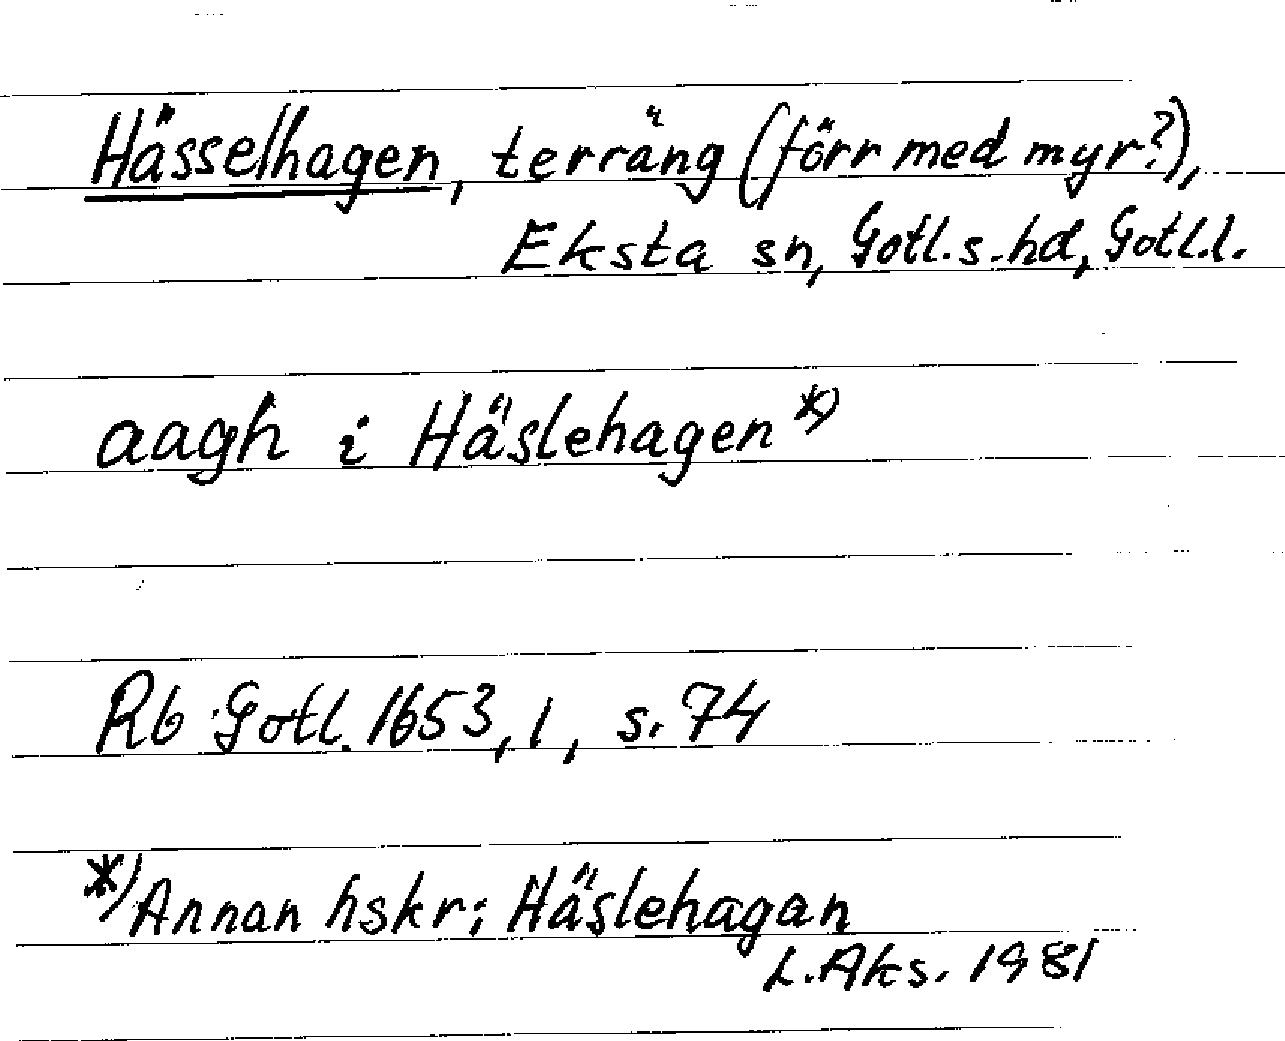 Hässelhagen, terräng (förr med myr?),
Eksta sn, Gotl.s.hd, Gotl.l.
aagh i Häslehagen *)
Rb Gotl. 1653,1, s. 74
*) Annan hskr: Häslehagan
L.Aks. 1981